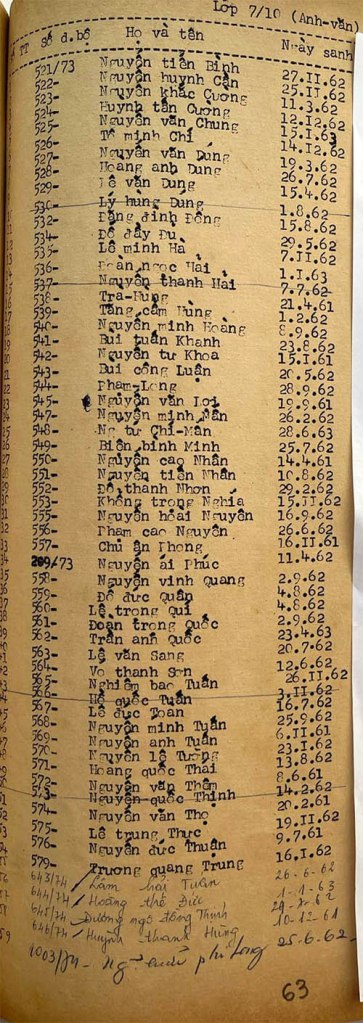 Lớp 7/10 (Anh-văn)
TT Số d.bộ Họ và tên Ngày sanh
521/73 Nguyễn tiến Bình 27.II.62
522- Nguyễn huynh Cần 25.II.62
523- Nguyễn khắc Cương 11.3.62
524- Huynh tấn Cường 12.12.62
525- Nguyễn văn Chung 15.1.63
526- Tô minh Chí 14.12.62
527- Nguyễn văn Dung 19.3.62
528- Hoang anh Dung 26.7.62
529- Lê văn Dung 15.4.62
530- Lý hung Dung 1.8.62
532- Đặng đình Đông 15.8.62
534- Đỗ đầy Đu 29.5.62
535- Lê minh Ha 7.II.62
536- Đoàn ngọc Hai 1.I.63
537- Nguyễn thanh Hai 7.7.62
538- Tra-Hung 21.4.61
539- Tăng cẩm Hùng 1.2.62
540- Nguyễn minh Hoàng 8.9.62
541- Bui tuấn Khanh 23.8.62
542- Nguyễn tư Khoa 15.I.61
543- Bui công Luận 20.5.62
544- Pham-Long 28.9.62
545- Nguyễn văn Lợi 19.9.61
547- Nguyễn minh Mẫn 26.2.62
548- Ng tư Chi-Mân 28.6.63
549- Biên binh Minh 25.7.62
550- Nguyễn cao Nhân 14.4.61
551- Nguyễn tiến Nhân 10.8.62
552- Đỗ thanh Nhơn 29.2.62
553- Khổng trọng Nghĩa 15.II.62
555- Nguyễn hoài Nguyên 16.9.62
556- Pham cao Nguyên 26.6.62
557- Chu ân Phong 16.II.61
209/73 Nguyễn ái Phúc 11.4.62
558- Nguyễn vinh Quang 2.9.62
559- Đỗ đưc Quân 4.8.62
560- Lê trong Qui 4.8.62
561- Đoàn trong Quốc 2.9.62
562- Trần anh Quốc 23.4.63
563- Lê văn Sang 20.7.62
564- Vo thanh Sơn 12.6.62
565- Nghiêm bao Tuấn 26.II.62
566- Hồ quốc Tuấn 3.II.62
567- Lê đưc Toan 16.7.62
568- Nguyễn minh Tuấn 25.9.62
569- Nguyễn anh Tuấn 6.II.61
570- Nguyễn lê Tường 23.I.62
571- Hoang quốc Thai 13.8.62
572- Nguyễn văn Thêm 8.6.61
573- Nguyễn quốc Thịnh 14.2.62
574- Nguyễn văn Thọ 20.2.61
575- Lê trung Thưc 19.II.62
576- Nguyễn đưc Thuân 9.7.61
579- Trương quang Trung 16.I.62
643/74 Lâm hải Tuấn 26-6-62
644/74 Hoàng thế Đức 1-1-63
645/74 Dương ngô Đông Thịnh
646/74 Huỳnh thanh Hưng 10-12-61
1003/74- phi Long 25.6.62
63